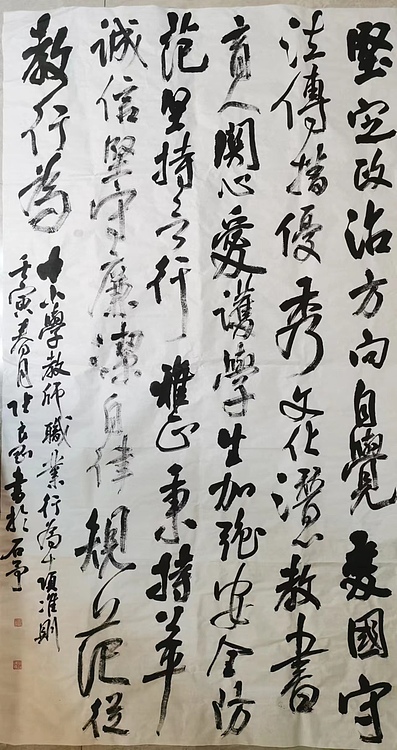 堅定政治方向自覺愛國守
法傳播優秀文化潛心教書
育人關心愛護學生加強安全防
范堅持言行雅正秉持公平
誠信堅守廉潔自律規范從
教行為
中小學教師職業行為十項准則
壬寅春月 書於石